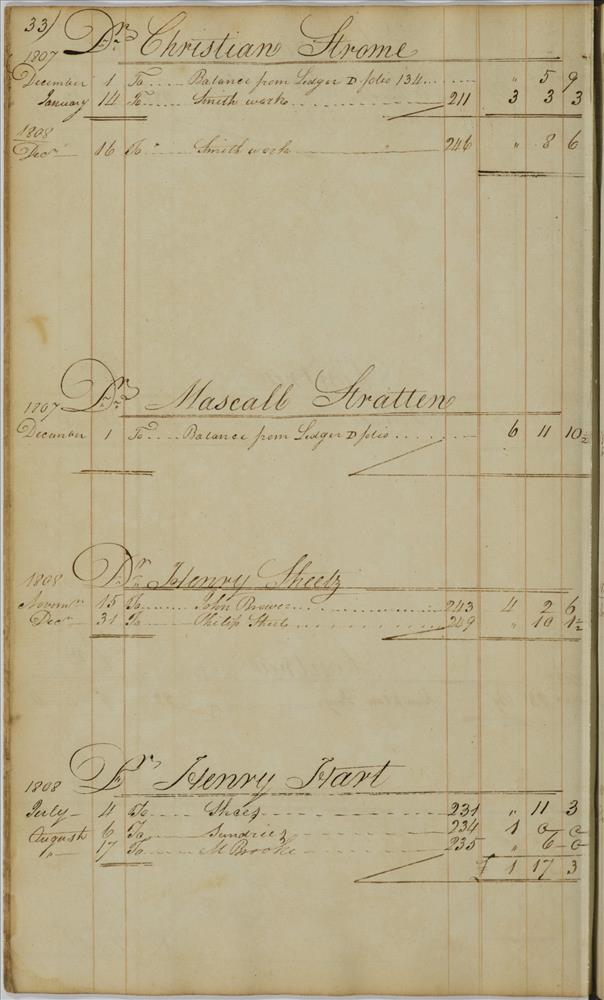 33)
1807 Dr. Christian Strome
December 1 To Balance from Ledger D folio 134 " 5 9
January 14 To Smith work 211 3 3 3
1808
Decr 16 To Smith work 246 " 8 6
1807 Dr. Mascall Stratten
December 1 To Balance from Ledger D folio 6 11 10½
1808 Dr. Henry Sheetz
Novemr 15 To John Brower 243 4 2 6
Decr 31 To Philip 249 " 10 1½
1808 Dr Henry Hart
July 4 To Shoes 231 " 11 3
August 6 To Sundries 234 1 0 0
" 17 To M Brooke 235 " 6 0
£ 1 17 3